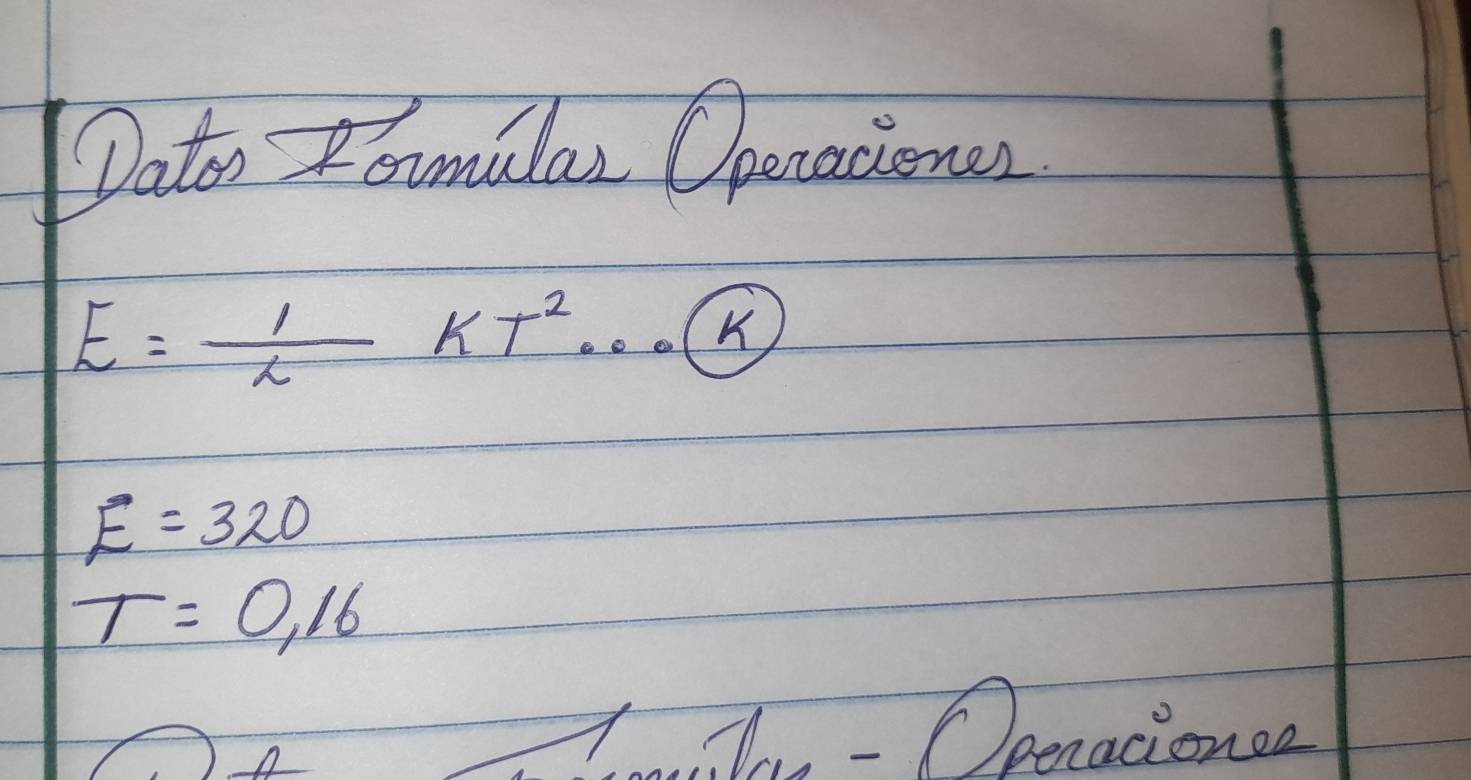 Datos Formúlas Operaciones.
E = 1/2 KT²...K
E = 320
T = 0,16
- Operaciones